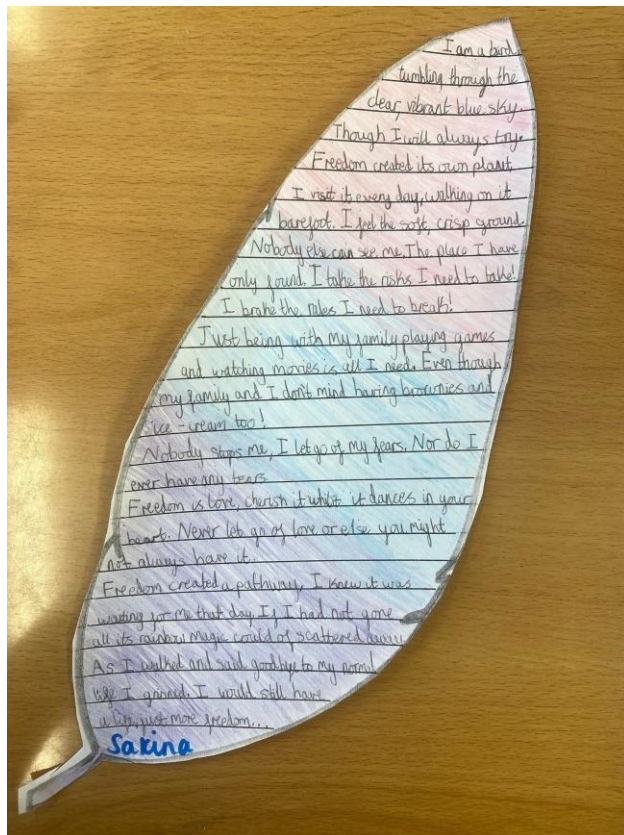 I am a bird,
tumbling through the
clear, vibrant blue sky.
Though I will always try.
Freedom created its own planet,
I visit it every day, walking on it
barefoot. I feel the soft, crisp ground.
Nobody else can see me, The place I have
only found. I take the risks I need to take!
I brake the rules I need to break!
Just being with my family playing games
and watching movies is all I need. Even though
my family and I don't mind having brownies and
ice-cream too!
Nobody stops me, I let go of my fears. Nor do I
ever have any tears.
Freedom is love, cherish it whilst it dances in your
heart. Never let go of love or else you might
not always have it.
Freedom created a pathway, I knew it was
waiting for me that day. If I had not gone
all its rainbow magic could of scattered away.
As I walked and said goodbye to my normal
life I grinned. I would still have
a life, just more freedom...
Sakina